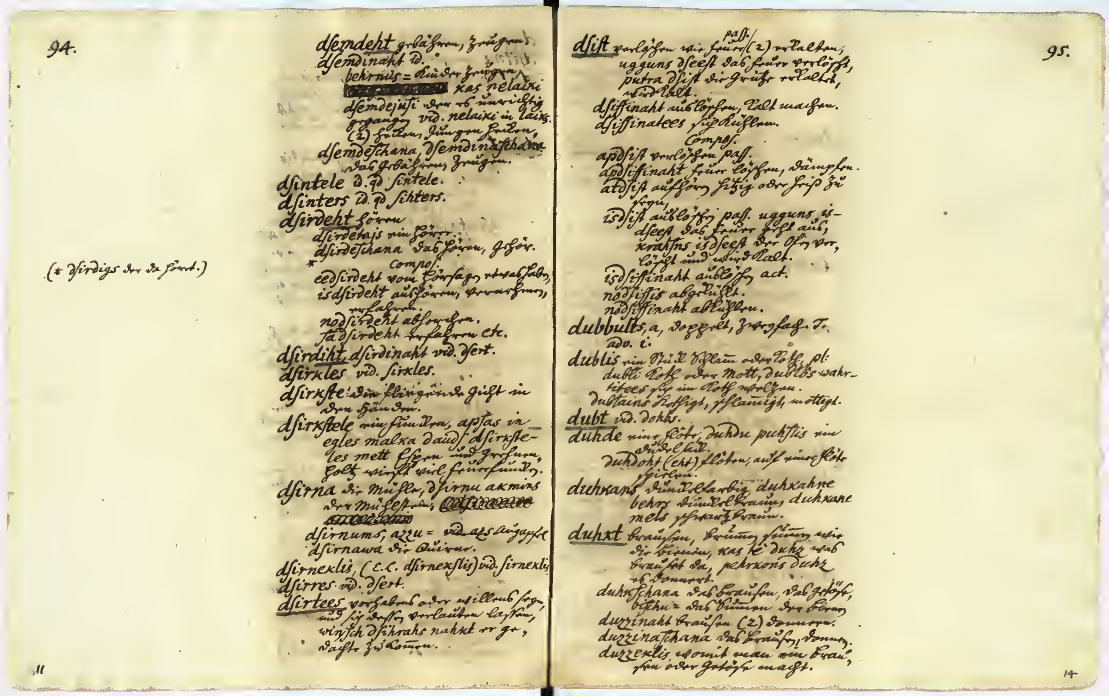 94.
dſemdeht gebähren, zeugen
dſemdinaht id.
behrnus = Kinder zeugen,
kas nelaiki
dſemdejuſi der es unrichtig
gegangen vid. nelaiki in laiks.
(2) hecken, Jungen hecken,
dſemdeſchana, dſemdinaſchana
das Gebähren, zeugen.
dſintele id. qd ſintele.
dſinters id. qd ſihters.
dſirdeht hören
dſirdetajs ein Hörer.
dſirdeſchana das hören, Gehör.
* Compos.
(* dſirdigs der da höret.)
eedſirdeht vom hörsagen etwas haben
isdſirdeht aushören, vernehmen,
erfahren.
nodſirdeht abhorchen.
ſadſirdeht erfahren etc.
dſirdiht dſirdinaht vid. dſert.
dſirkles vid. ſirkles.
dſirkſte die fliegende Gicht in
den Händen.
dſirkſtele ein funken, apſas in
egles malka dauds dſirkſte-
les mett Espen und Grehnen,
holtz wirft viel feuerfunken.
dſirna die Mühle, dſirnu akmins
der Mühlstein,
dſirnums, azzu = vid. azs Augapfel
dſirnawa die Quirne.
dſirneklis, (C.C. dſirnekſlis) vid. ſirneklis
dſirres vid. dſert.
dſirtees vorhabens oder willens seyn,
und sich dessen verlauten lassen,
winſch dſihrahs nahkt er ge,
dachte zu kommen.
11
95.
dſiſt verlöschen wie feuer (2) erkalten, pass.
ugguns dſeest das feuer verlöscht,
putra dſiſt die Grütze erkaltet,
wird kalt.
dſiſſinaht auslöschen, kalt machen.
dſiſſinatees sich kühlen.
Compos.
apdſiſt verlöschen pass.
apdſiſſinaht feuer löschen, dämpfen.
atdſiſt aufhören hitzig oder heiß zu
seyn,
isdſiſt auslöschen pass. ugguns is-
dſeest das feuer geht aus,
krahſns isdſeest der Ofen ver,
löscht und wird kalt.
isdſiſſinaht auslöschen act.
nodſiſſis abgekühlt.
nodſiſſinaht abkühlen.
dubbults, a, doppelt, zweyfach. T.
adv. i.
dublis ein Stück Schlam oder Koth, pl:
dubli Koth oder Mott, dublôs wahr-
titees sich im Koth weltzen.
dublains Kothigt, schlammigt, mottigt.
dubt vid. dohbs.
duhde eine flöte, duhdu puhſlis ein
dudelsack.
duhdoht (eht) flöten, auf einer flöte
spielen.
duhkans dunkelfarbig duhkahne
behrs dunkelbraun, duhkane
mels schwartzbraun.
duhkt brausen, brummen sumen wie
die bienen, kas tê duhz was
brauset da, pehrkons duhz
es donnert.
duhkſchana das brausen, das getöse,
biſchu = das sumen der bienen
duzzinaht brausen (2) donnern.
duzzinaſchana das brausen, donnern,
duzzeklis womit man ein brau,
sen oder getöse macht.
14